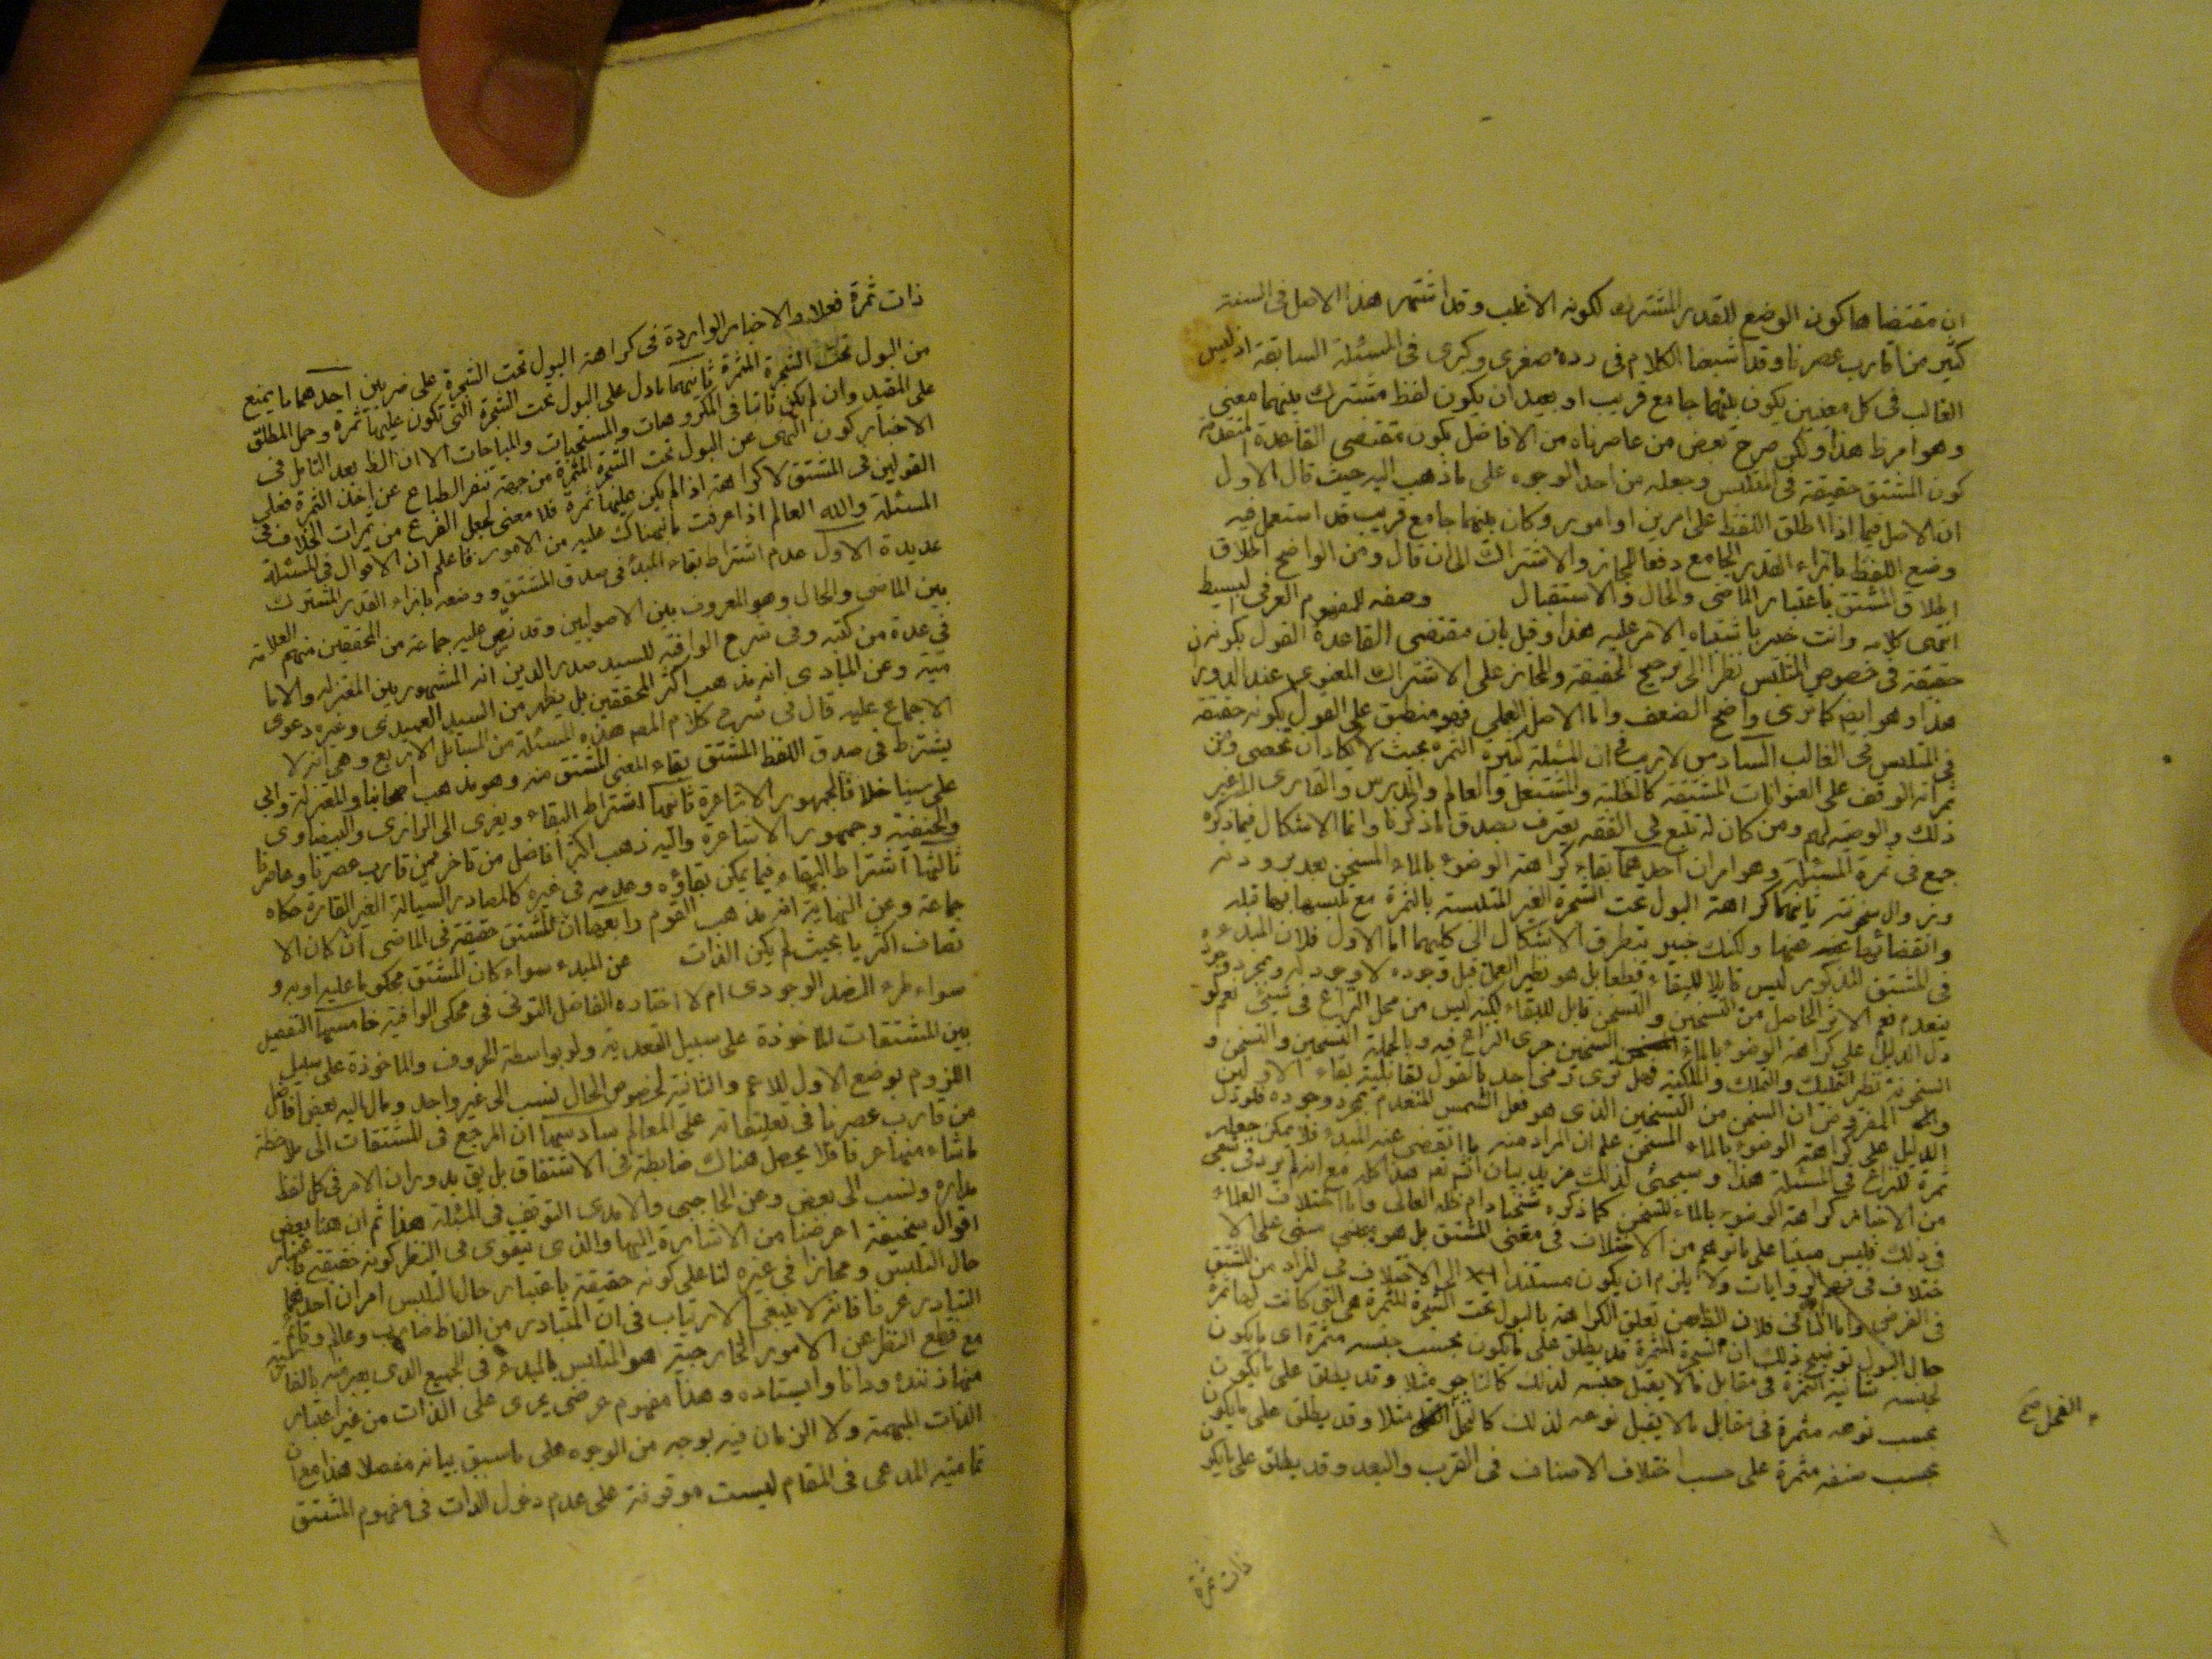 ان مقتضاها كون الوضع للقدر المشترك لكونه الاغلب وقد اشتهر هذا الاصل فى السنة
كثير ممن قارب عصرنا وقد اشبعنا الكلام فى رده صغرى وكبرى فى المسئلة السابقة اذ ليس
الغالب فى كل معنيين يكون بينهما جامع قريب او بعيد ان يكون لفظ مشترك بينهما معنى
وهو امر ظ هذا ولكن صرح بعض من عاصرناه من الافاضل بكون مقتضى القاعدة المتقدمة
كون المشتق حقيقة فى المتلبس وجعله من احد الوجوه على ما ذهب اليه حيث قال الاول
ان الاصل فيما اذا اطلق اللفظ على امرين او امور وكان بينهما جامع قريب قد استعمل فيه
وضع اللفظ بازاء القدر الجامع دفعا للمجاز والاشتراك الى ان قال ومن الواضح اطلاق
اطلاق المشتق باعتبار الماضى والحال والاستقبال وصفه للمفهوم العرفى البسيط
انتهى كلامه وانت خبير باشتباه الامر عليه هذا وقيل بان مقتضى القاعدة القول بكونه
حقيقة فى خصوص المتلبس نظرا الى ترجيح الحقيقة والمجاز على الاشتراك المعنوى عند الدوران
هذا وهو ايضا كما ترى واضح الضعف واما الاصل العملى فهو منطبق على القول بكونه حقيقة
فى المتلبس فى الغالب السادس لا ريب فى ان المسئلة كثيرة الثمرة بحيث لا تكاد ان تحصى ومن
ثمراته الوقف على العنوانات المشتقة كالطلبة والمشتغل والعالم والمدرس والقارى الى غير
ذلك والوصية لهم ومن كان له تتبع فى الفقه يعترف بصدق ما ذكرنا وانما الاشكال فيما ذكره
جمع فى ثمرة المسئلة وهو امران احدهما بقاء كراهة الوضوء بالماء المسخن بعد برودته
وزوال سخونته ثانيهما كراهة البول تحت الشجرة الغير المتلبسة بالثمرة مع تلبسها بها قبله
وانقضائها عنها ولكنك خبير بتطرق الاشكال الى كليهما اما الاول فلان المبدء
فى المشتق المذكور ليس قابلا للبقاء قطعا بل هو نظير العمل قبل وجوده لا وجود له وبمجرد وجوده
ينعدم نعم الاثر الحاصل من التسخين والتسخن قابل للبقاء لكنه ليس من محل النزاع فى شىء نعم لو
دل الدليل على كراهة الوضوء بالماء السخين جرى النزاع فيه وبالجملة التسخين والتسخن و
السخونة نظير التمليك والتملك والملكية فهل ترى من احد بالقول لقابلية بقاء الاولين
المفروض ان المسخن من التسخين الذى هو فعل الشمس المنعدم بمجرد وجوده فلو دل
الدليل على كراهة الوضوء بالماء المسخن علم ان المراد منه ما انقضى عنه المبدء فلا يمكن جعله
ثمرة للنزاع فى المسئلة هذا وسيجىء لذلك مزيد بيان هذا كله مع انه لم يرد فى شىء
من الاخبار كراهة الوضوء بالماء المسخن كما ذكره شيخنا دام ظله العالى واما اختلاف العلماء
فى ذلك فليس مبنيا على ما توهم من الاختلاف فى معنى المشتق بل هو مبنى على الا
ختلاف فى الروايات ولا يلزم ان يكون مستندا الى الاختلاف فى المراد من المشتق
فى الفرض واما الثانى فلان الظ من تعلق الكراهة بالبول تحت الشجرة المثمرة هى التى كانت لها ثمرة
حال البول توضيح ذلك ان الشجرة المثمرة قد يطلق على ما يكون بحسب جنسه مثمرة اى ما يكون
لجنسه شانية الثمرة فى مقابل ما لا يقبل جنسه لذلك مثلا وقد يطلق على ما يكون
بحسب نوعه مثمرة فى مقابل ما لا يقبل نوعه لذلك كالنخل مثلا وقد يطلق على ما يكون
بحسب صنفه مثمرة على حسب اختلاف الاصناف فى القرب والبعد وقد يطلق على ما يكو
الفحل صح
ذات ثمرة
ذات ثمرة فعلا والاخبار الواردة فى كراهة البول تحت الشجرة على ضربين احدهما ما يمنع
من البول تحت الشجرة المثمرة ثانيهما ما دل على البول تحت الشجرة التى تكون عليها ثمرة وحمل المطلق
على المقيد وان لم يكن ثابتا فى المكروهات والمستحبات والمباحات الا ان الظ بعد التامل فى
الاخبار كون النهى عن البول تحت الشجرة المثمرة من جهة تنفر الطباع عن اخذ الثمرة فعلى
القولين فى المشتق لا كراهة اذا لم يكن عليها ثمرة فلا معنى لجعل الفرع من ثمرات الخلاف فى
المسئلة والله العالم اذا عرفت ما نبهناك عليه من الامور فاعلم ان الاقوال فى المسئلة
عديدة الاول عدم اشتراط بقاء المبدء فى صدق المشتق ووضعه بازاء القدر المشترك
بين الماضى والحال وهو المعروف بين الاصوليين وقد نص عليه جماعة من المحققين منهم العلامة
فى عدة من كتبه وفى شرح الوافية للسيد صدر الدين انه المشهور بين المعتزلة والاما
مية وعن المبادى انه مذهب اكثر المحققين بل يظهر من السيد العميدى وغيره دعوى
الاجماع عليه قال فى شرح كلام المصه هذه المسئلة من المسائل الاربع وهى انه لا
يشترط فى صدق اللفظ المشتق بقاء المعنى المشتق منه وهو مذهب اصحابنا والمعتزلة وابى
على سينا خلافا لجمهور الاشاعرة ثانيها اشتراط البقاء ويعزى الى الرازى والبيضاوى
والحنفية وجمهور الاشاعرة واليه ذهب اكثر افاضل من تاخر ممن قارب عصرنا وعاصرنا
ثالثها اشتراط البقاء فيما يمكن بقاؤه وعدمه فى غيره كالمصادر السيالة الغير القارة حكاه
جماعة وعن النهاية انه مذهب القوم رابعها ان المشتق حقيقة فى الماضى ان كان الا
تصاف اكثريا بحيث لم يكن الذات عن المبدء سواء كان المشتق محكوما عليه او به و
سواء طرء الضد الوجودى ام لا اختاره الفاضل التونى فى محكى الوافية خامسها التفصيل
بين المشتقات الماخوذة على سبيل التعدية ولو بواسطة الحروف والماخوذة على سبيل
اللزوم بوضع الاول للاعم والثانية لخصوص الحال نسب الى غير واحد ومال اليه بعض افاضل
من قارب عصرنا فى تعليقاته على المعالم سادسها ان المرجع فى المشتقات الى ملاحظة
ما شاء منها عرفا فلا يحصل هناك ضابطة فى الاشتقاق بل يق بدوران الامر فى كل لفظ
مداره ونسب الى بعض وعن الحاجبى والامدى التوقف فى المسئلة هذا ثم ان هنا بعض
اقوال سخيفة اعرضنا من الاشارة اليها والذى يتقوى فى النظر كونه حقيقة باعتبار
حال التلبس ومجازا فى غيره لنا على كونه حقيقة باعتبار حال التلبس امران احدهما
التبادر عرفا فانه لا ينبغى الارتياب فى ان المتبادر من الفاظ ضارب وعالم وقائم
مع قطع النظر عن الامور الخارجية هو المتلبس بالمبدء فى الجميع الذى يعبر عنه بالفارسية
منها زننده ودانا وايستاده وهذا مفهوم عرضى يجرى على الذات من غير اعتبار
الذات المبهمة ولا الزمان فيه بوجه من الوجوه على ما سبق بيانه مفصلا هذا مع ان
تمامية المدعى فى المقام ليست موقوفة على عدم دخول الذات فى مفهوم المشتق